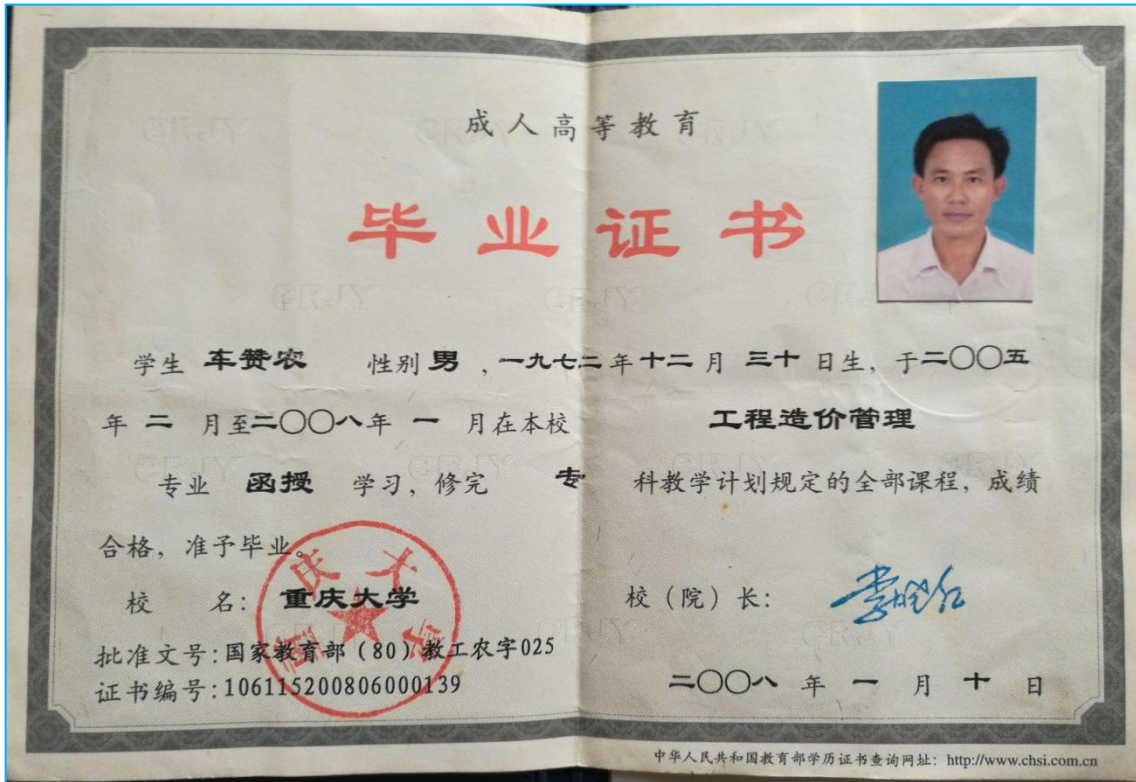 成人高等教育
毕业证书
学生 车赞农 性别 男 ，一九七二年 十二 月 三十 日生，于二〇〇五
年 二 月至二〇〇八年 一 月在本校 工程造价管理
专业 函授 学习，修完 专 科教学计划规定的全部课程，成绩
合格，准予毕业。
校 名：重庆大学 校（院）长：
批准文号：国家教育部（80）教工农字025
证书编号：106115200806000139
二〇〇八 年 一 月 十 日
重庆大学
中华人民共和国教育部学历证书查询网址：http://www.chsi.com.cn